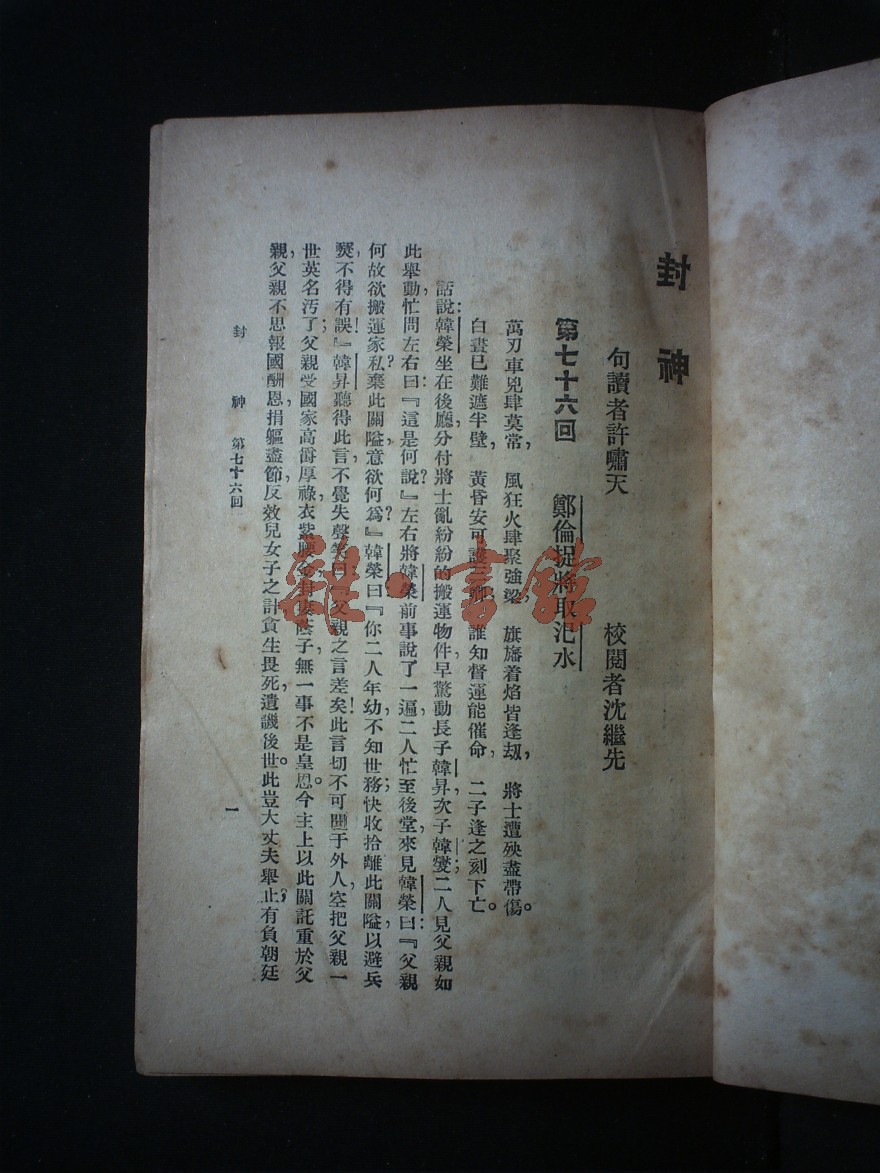 封神
句讀者許嘯天　校閱者沈繼先
第七十六回　鄭倫捉將取汜水
萬刃車兇肆莫常，風狂火肆聚強梁，旗旛着焰皆逢刼，將士遭殃盡帶傷。
白晝已難遮半壁，黃昏安可護三卿，誰知督運能催命，二子逢之刻下亡。
話說：韓榮坐在後廳分付將士亂紛紛的搬運物件早驚動長子韓昇，次子韓燮；二人見父親如
此舉動，忙問左右曰：『這是何說？』左右將韓榮前事說了一遍，二人忙至後堂，來見韓榮曰：『父親
何故欲搬運家私？棄此關隘，意欲何爲？』韓榮曰：『你二人年幼，不知世務；快收拾離此關隘，以避兵
燹，不得有誤！』韓昇聽得此言，不覺失聲笑曰：『父親之言差矣！此言切不可聞于外人，空把父親一
世英名汚了；父親受國家高爵厚祿，衣紫腰金，封妻蔭子，無一事不是皇恩。今主上以此關託重於父
親，父親不思報國酬恩，捐軀盡節，反效兒女子之計，貪生畏死，遺譏後世。此豈大丈夫舉止，有負朝廷
封神　第七十六回
一
雜·書館